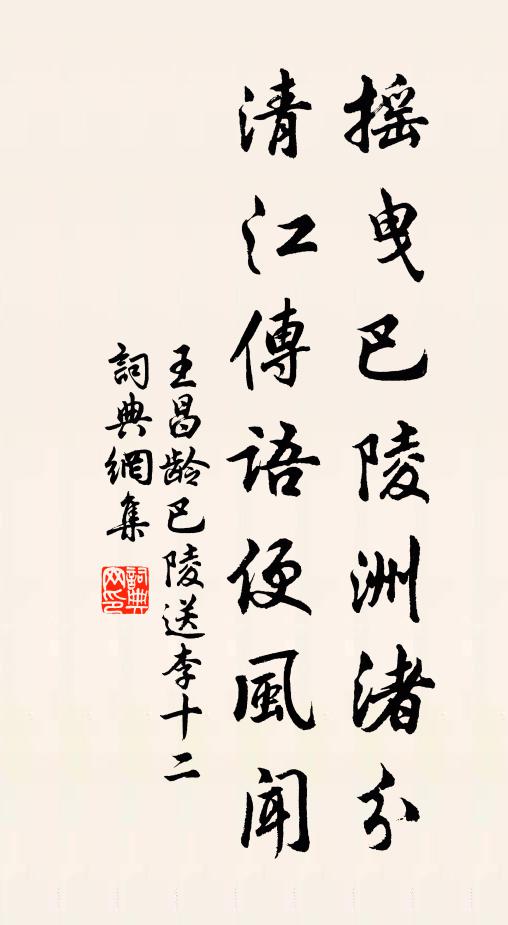 摇曳巴陵洲渚分
清江傳語便風聞
王昌龄巴陵送李十二
詞典網集
詞典網印